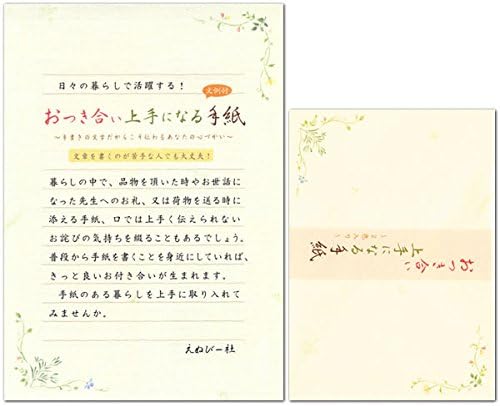 日々の暮らしで活躍する！
文例付
おつき合い上手になる手紙
～手書きの文字だからこそ伝わるあなたの心づかい～
文章を書くのが苦手な人でも大丈夫！
暮らしの中で、品物を頂いた時やお世話に
なった先生へのお礼、又は荷物を送る時に
添える手紙、口では上手く伝えられない
お詫びの気持ちを綴ることもあるでしょう。
普段から手紙を書くことを身近にしていれば、
きっと良いお付き合いが生まれます。
手紙のある暮らしを上手に取り入れて
みませんか。
えぬびー社
おつき合い
上手になる手紙